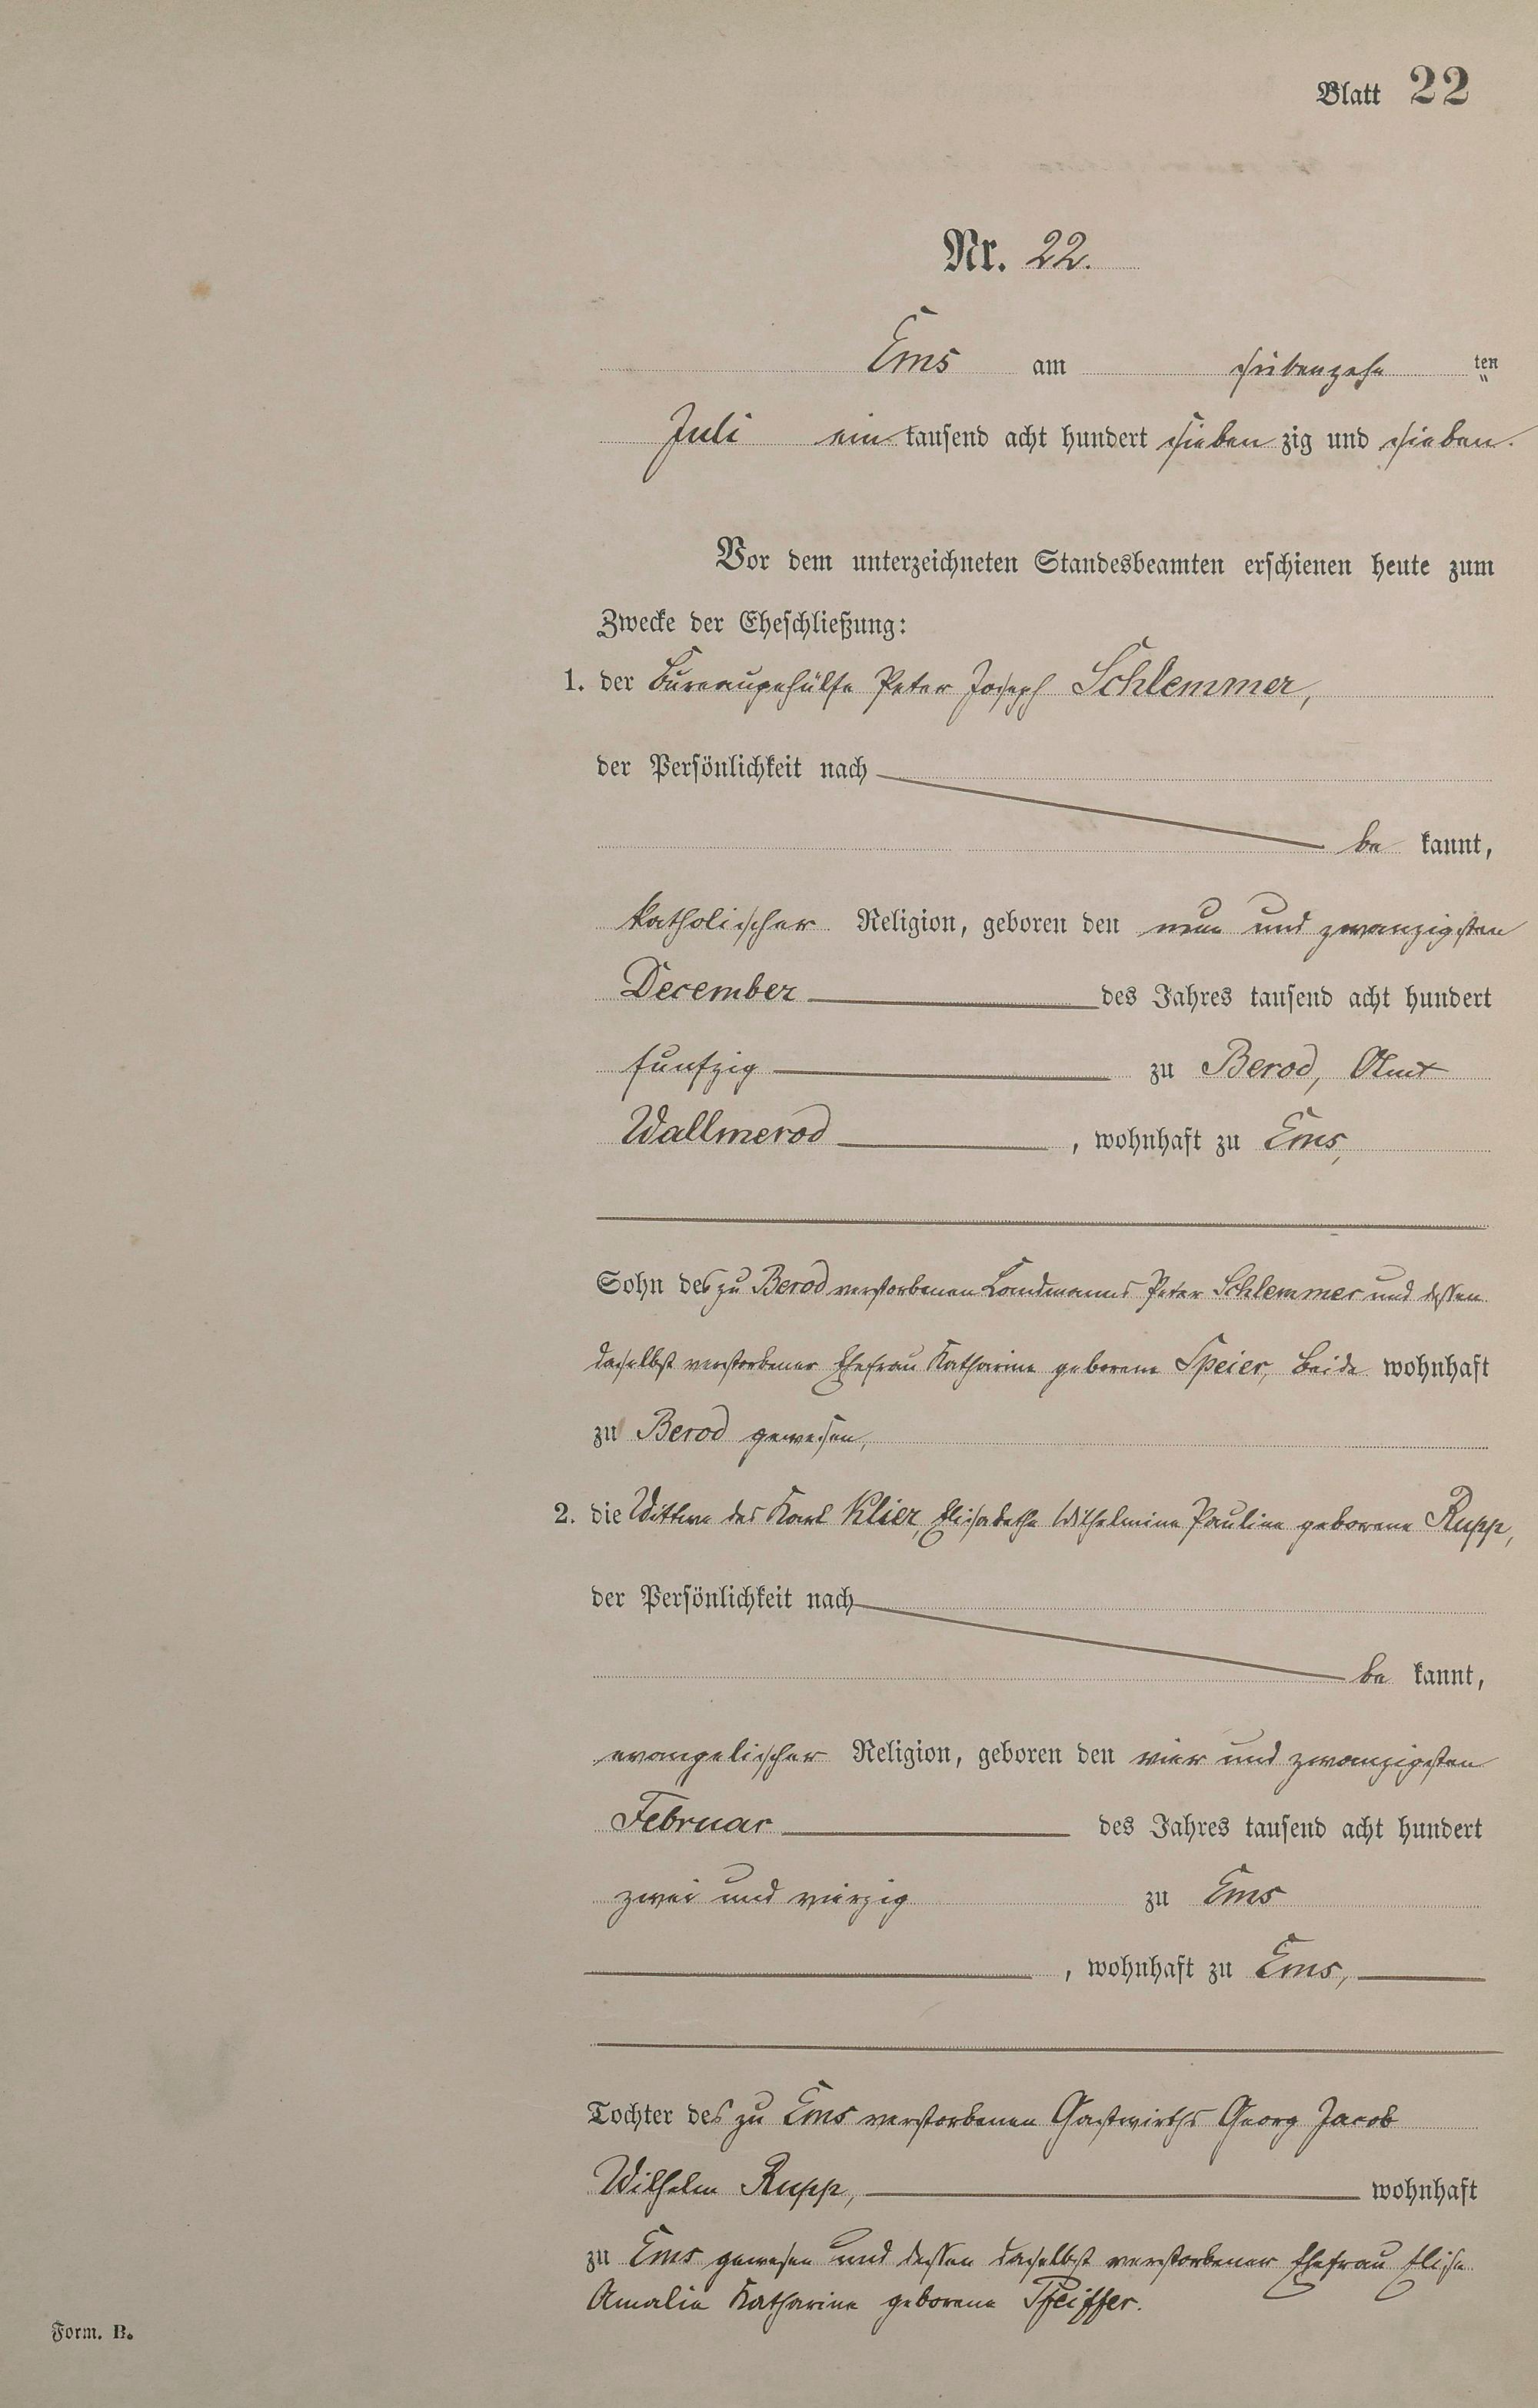 Blatt 22
Nr. 22.
Ems am siebenzehn ten
Juli ein tausend acht hundert sieben zig und sieben.
Vor dem unterzeichneten Standesbeamten erschienen heute zum
Zwecke der Eheschließung:
1. der Bureaugehülfe Peter Joseph Schlemmer,
der Persönlichkeit nach
be kannt,
katholischer Religion, geboren den neun und zwanzigsten
December des Jahres tausend acht hundert
funfzig zu Berod, Amt
Wallmerod , wohnhaft zu Ems,
Sohn des zu Berod verstorbenen Landmanns Peter Schlemmer und dessen
daselbst verstorbener Ehefrau Katharine geborene Speier, beide wohnhaft
zu Berod gewesen,
2. die Wittwe des Karl Klier, Elisabethe Wilhelmine Pauline geborene Rupp,
der Persönlichkeit nach
be kannt,
evangelischer Religion, geboren den vier und zwanzigsten
Februar des Jahres tausend acht hundert
zwei und vierzig zu Ems
, wohnhaft zu Ems,
Tochter des zu Ems verstorbenen Gastwirths Georg Jacob
Wilhelm Rupp, wohnhaft
zu Ems gewesen und dessen daselbst verstorbener Ehefrau Elise
Amalie Katharine geborene Pfeiffer.
Form. B.